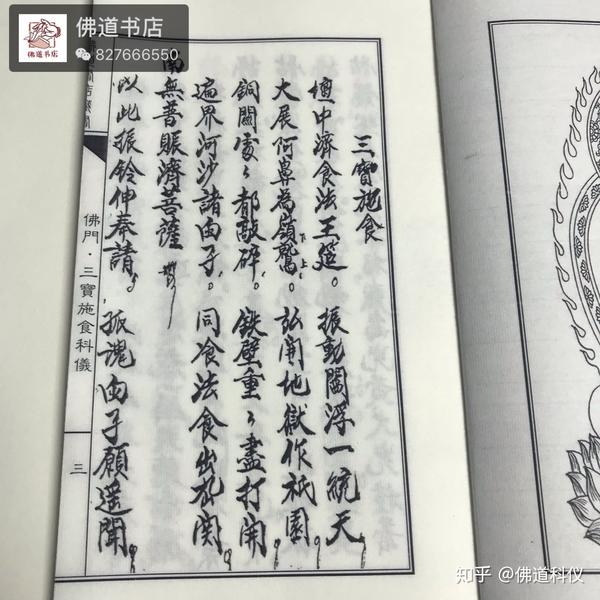 佛道书店
827666550
三寶施食
壇中濟食法王筵。振動閻浮一統天。
大展阿鼻為嶺鷲。弘開地獄作祇園。
銅關處〻都敲碎。鉄壁重〻盡打開。
遍界河沙諸由子。同飡法食出苑関。
南無普賑濟菩薩
以此振鈴伸奉請。孤魂由子願遙聞。
佛門·三寶施食科儀
三
知乎 @佛道科仪